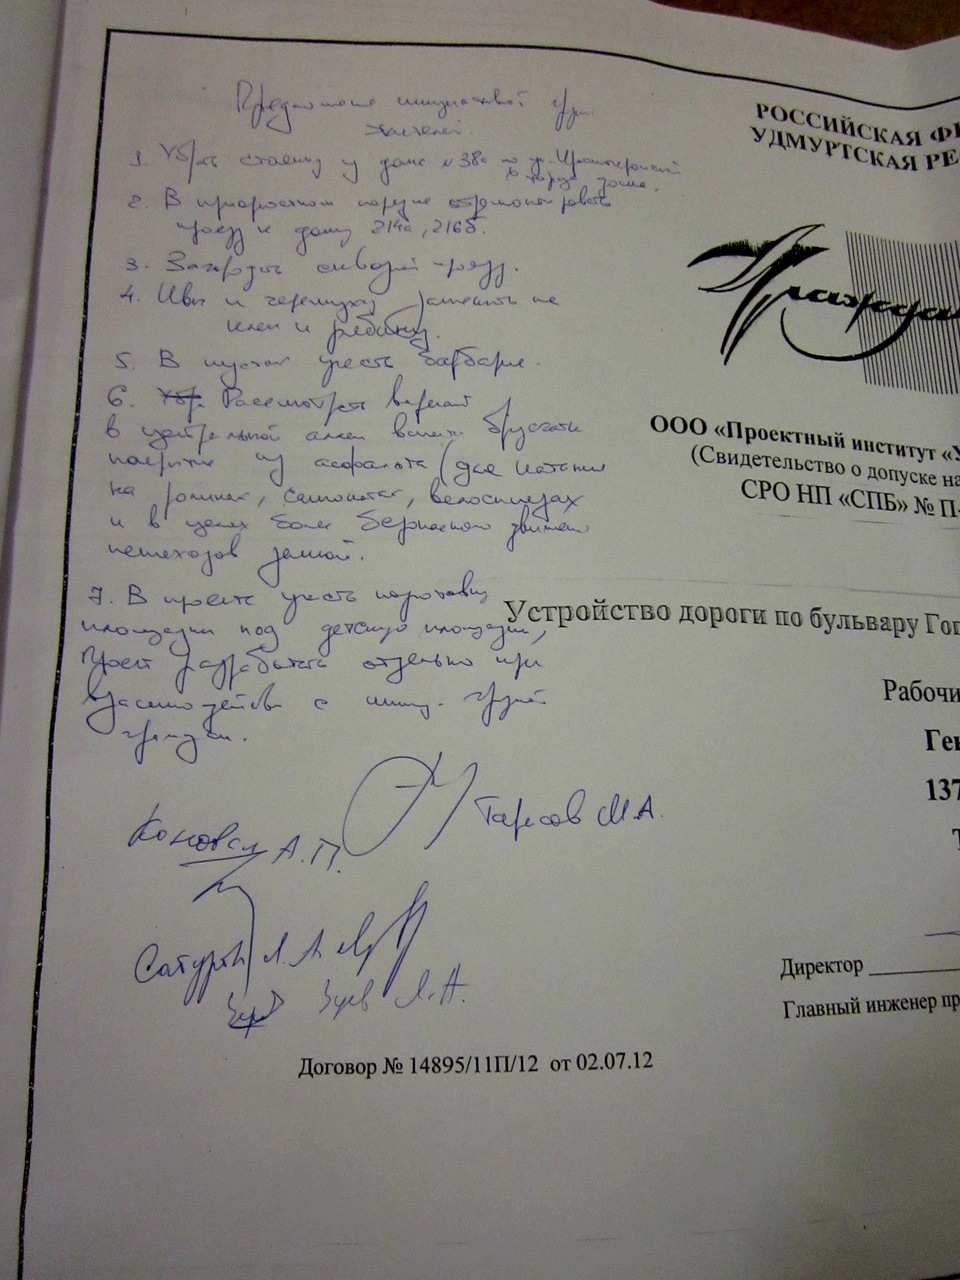 Предложение инициативной груп
жителей.
1. Убрать стоянку у дома №38а по ул.
в торце дома.
2. В приоритетном порядке отремонтировать
проезд к дому 214а, 216б.
3. Загородить сквозной проезд.
4. Ивы и черемуху заменить на
клен и рябину.
5. В кустах учесть барбарис.
6. Рассмотреть вариант
в центральной аллеи вместо брусчатки
покрытие из асфальта (для катания
на роликах, самокатах, велосипедах
и в целях более безопасного движения
пешеходов зимой.
7. В проекте учесть
площадки под детскую площадку,
Проект разработать отдельно при
взаимодействии с иниц. группой
граждан.
А.П.
Тарасов М.А.
Л.А.
Зуев Л.А.
РОССИЙСКАЯ ФЕ
УДМУРТСКАЯ РЕ
ООО «Проектный институт «У
(Свидетельство о допуске на
СРО НП «СПБ» № П-
Устройство дороги по бульвару Гог
Рабочи
Ген
137
Т
Директор
Главный инженер пр
Договор № 14895/11П/12 от 02.07.12